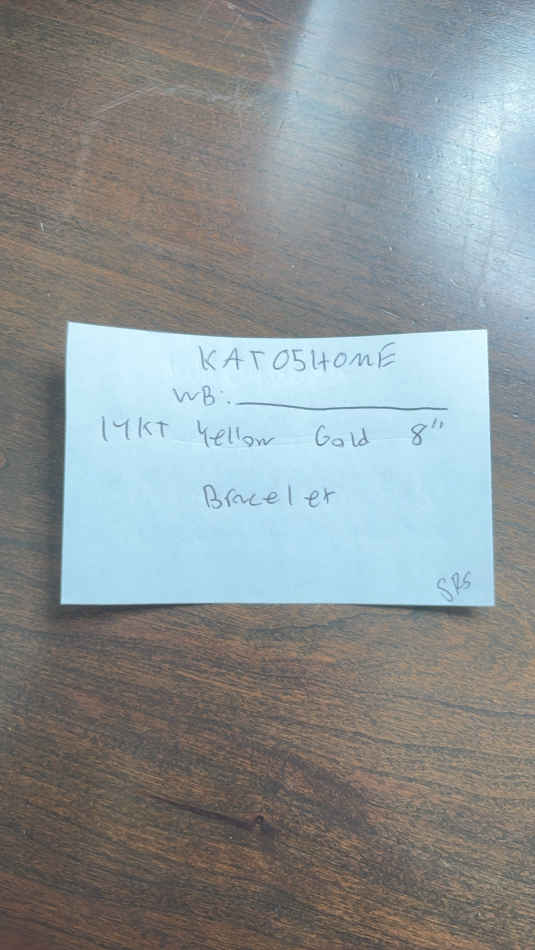 KATO5HOME
WB: ________
14KT Yellow Gold 8"
Bracelet
SRS